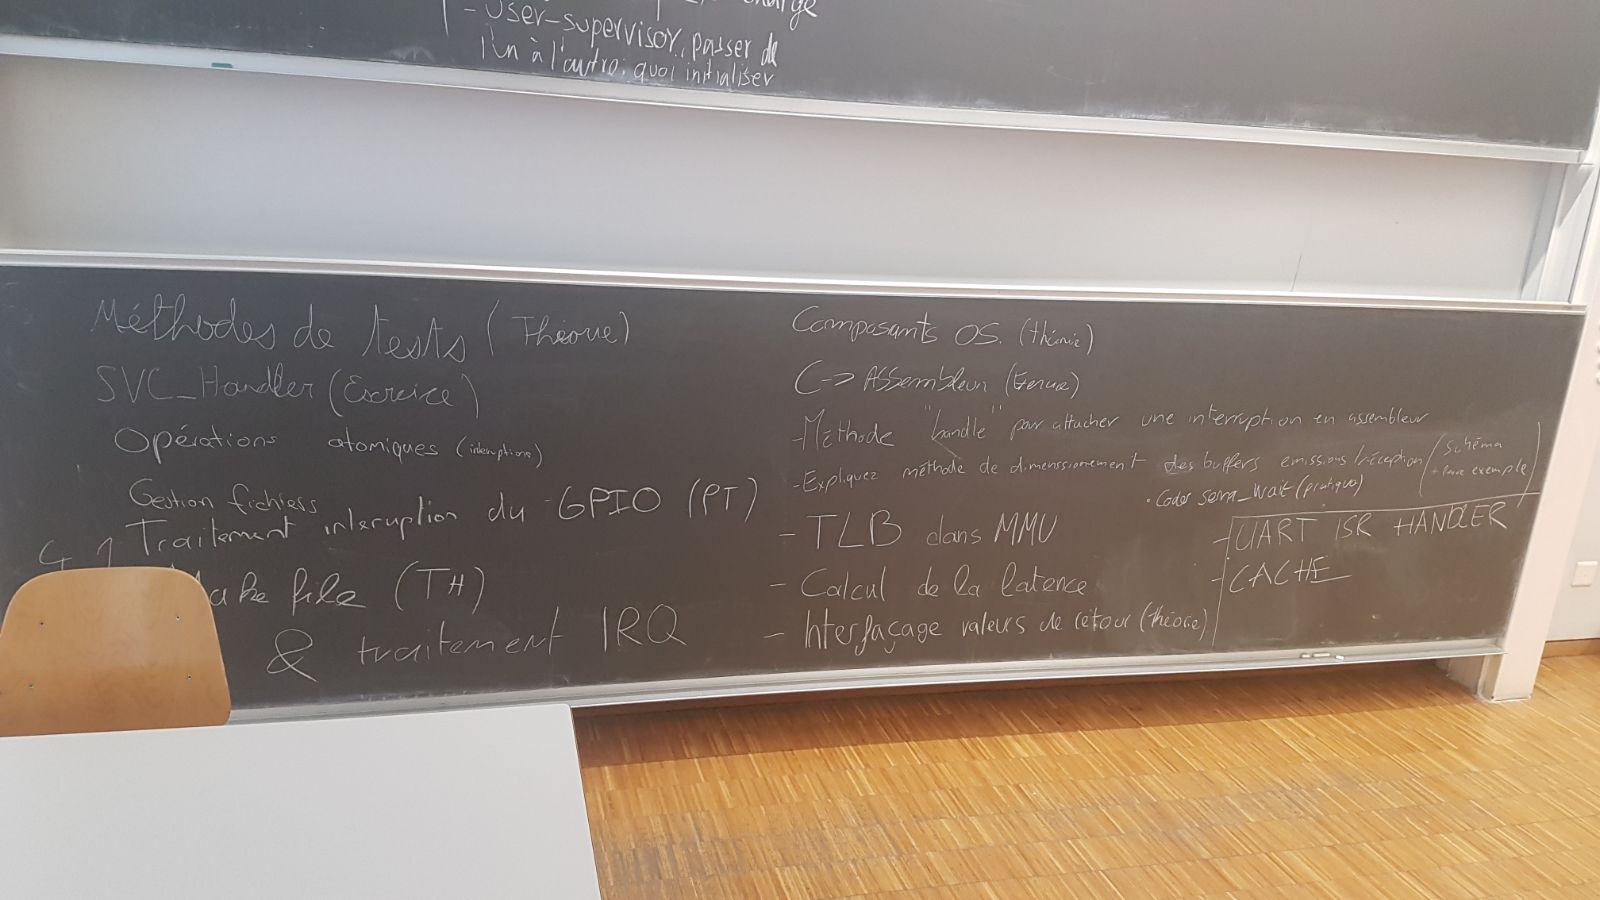 charge
- User-supervisor, passer de
l'un à l'autre, quoi initialiser
Méthodes de tests (Théorie)
SVC_Handler (Exercice)
Opérations atomiques (interuptions)
Gestion fichiers
Traitement interuption du GPIO (PT)
file (TH)
& traitement IRQ
Composants OS. (théorie)
C -> Assembleur
- Méthode "handle" pour attacher une interruption en assembleur
- Expliquez méthode de dimenssionement des buffers emissions/réception (schéma
+ faire exemple)
• Coder sema_wait (pratique)
- TLB dans MMU
- Calcul de la latence
- Interfaçage valeurs de retour (théorie)
- UART ISR HANDLER
- CACHE